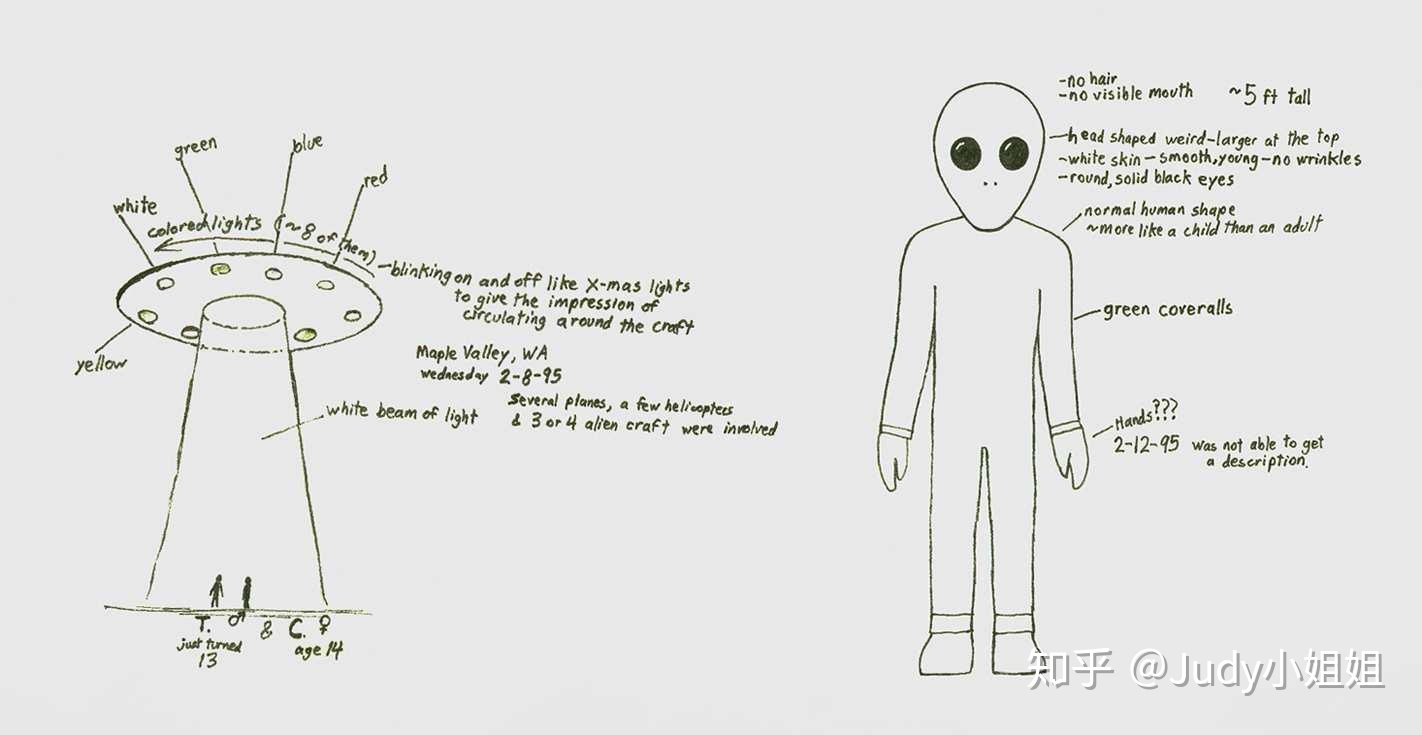 green
blue
red
white
colored lights (~8 of them)
-blinking on and off like X-mas lights
to give the impression of
circulating around the craft
yellow
Maple Valley, WA
wednesday 2-8-95
white beam of light
Several planes, a few helicopters
& 3 or 4 alien craft were involved
T. ♂ & C. ♀
just turned
13
age 14
-no hair
-no visible mouth
~5 ft tall
-head shaped weird-larger at the top
~white skin - smooth, young - no wrinkles
-round, solid black eyes
normal human shape
~more like a child than an adult
green coveralls
Hands???
2-12-95 was not able to get
a description.
知乎 @Judy小姐姐